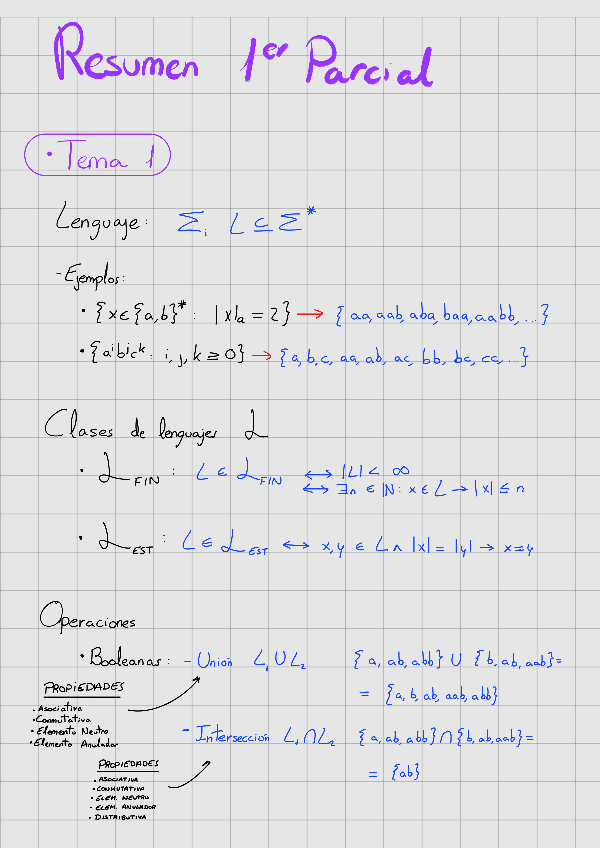 Resumen 1er Parcial
• Tema 1
Lenguaje: Σ, L ⊆ Σ*
- Ejemplos:
• {x∈{a,b}* : |x|ₐ = 2} → {aa, aab, aba, baa, aabb, ...}
• {aⁱbʲcᵏ : i, j, k ≥ 0} → {a, b, c, aa, ab, ac, bb, bc, cc, ..}
Clases de lenguajes ℒ
• ℒ_FIN : L ∈ ℒ_FIN ↔ |L| < ∞
↔ ∃n ∈ ℕ : x ∈ L → |x| ≤ n
• ℒ_EST : L ∈ ℒ_EST ↔ x, y ∈ L ∧ |x| = |y| → x = y
Operaciones
• Booleanas : - Unión L₁ ∪ L₂ {a, ab, abb} ∪ {b, ab, aab} =
= {a, b, ab, aab, abb}
PROPIEDADES
• Asociativa
• Conmutativa
• Elemento Neutro
• Elemento Anulador
- Intersección L₁ ∩ L₂ {a, ab, abb} ∩ {b, ab, aab} =
= {ab}
PROPIEDADES
• ASOCIATIVA
• CONMUTATIVA
• ELEM. NEUTRO
• ELEM. ANULADOR
• DISTRIBUTIVA